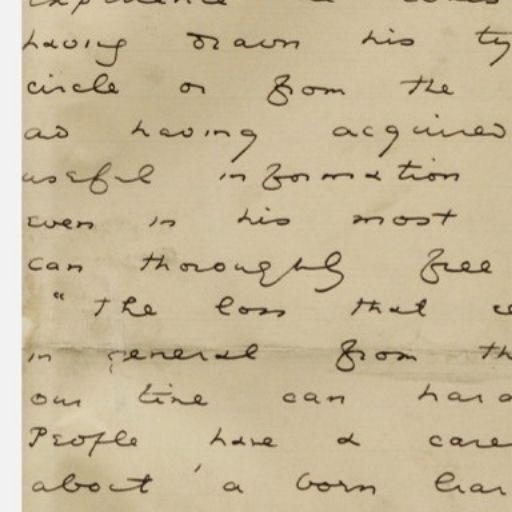 having drawn his ty
circle or from the
as having acquired
useful information
even in his most
can thoroughly free
"The loss that
in general from th
our time can hard
People have a care
about 'a born liar